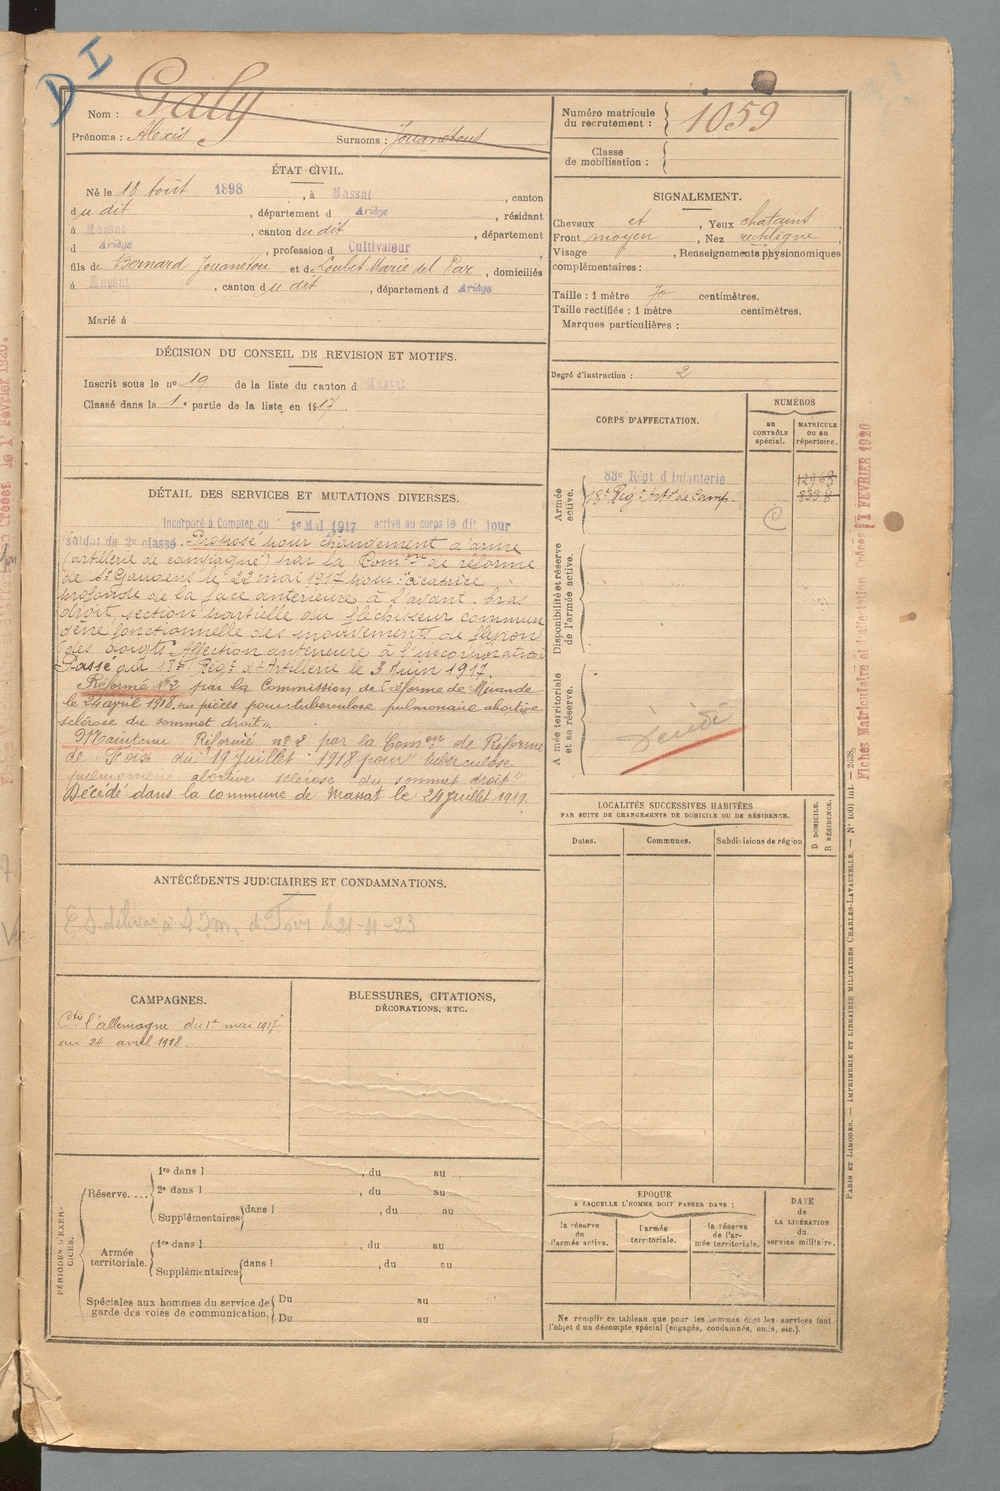 D I
Nom : Galy
Prénoms : Alexis Surnoms : Jouanetou
Numéro matricule du recrutement : 1059
Classe de mobilisation :
ÉTAT CIVIL.
Né le 18 Août 1898, à Massat, canton
du dit, département d Ariège, résidant
à Massat, canton du dit, département
d Ariège, profession d Cultivateur
fils de Bernard Jouanetou et de Loubet Marie del Par, domiciliés
à Massat, canton du dit, département d Ariège
Marié à
SIGNALEMENT.
Cheveux et, Yeux chatains
Front moyen, Nez rectiligne
Visage , Renseignements physionomiques
complémentaires :
Taille : 1 mètre 70 centimètres.
Taille rectifiée : 1 mètre centimètres.
Marques particulières :
Degré d'instruction : 2
DÉCISION DU CONSEIL DE REVISION ET MOTIFS.
Inscrit sous le n° 19 de la liste du canton d Massat
Classé dans la 1e partie de la liste en 1917.
CORPS D'AFFECTATION.
NUMÉROS
au CONTRÔLE spécial.
MATRICULE OU AU répertoire.
Armée active.
83e Régt d'Infanterie
18e Régt Artie de Camp.
C
Disponibilité et réserve de l'armée active.
Armée territoriale et sa réserve.
Décédé
DÉTAIL DES SERVICES ET MUTATIONS DIVERSES.
Incorporé à Compter du 1er Mai 1917 arrivé au corps le dit jour
soldat de 2e classe. Proposé pour changement d'arme
(artillerie de campagne) par la Comon de réforme
de St Gaudens le 22 mai 1917 pour "cicatrice
profonde de la face antérieure à l'avant-bras
droit, section partielle du fléchisseur commun
gêne fonctionnelle des mouvements de flexion
des doigts Affection antérieure à l'incorporation
Passé au 18e Régt d'Artillerie le 3 Juin 1917.
Réformé N°2 par la Commission de réforme de Mirande
le 24 avril 1918, sur pièces pour tuberculose pulmonaire abortive
sclérose du sommet droit".
Maintenu Réformé n° 2 par la Comon de Réforme
de Foix du 17 Juillet 1918 pour "tuberculose
pulmonaire abortive sclérose du sommet droit"
Décédé dans la commune de Massat le 24 Juillet 1919.
LOCALITÉS SUCCESSIVES HABITÉES
PAR SUITE DE CHANGEMENTS DE DOMICILE OU DE RÉSIDENCE.
Dates.
Communes.
Subdivisions de région
D DOMICILE.
R RÉSIDENCE.
ANTÉCÉDENTS JUDICIAIRES ET CONDAMNATIONS.
CAMPAGNES.
Cto l'allemagne du 1er mai 1917
au 24 avril 1918.
BLESSURES, CITATIONS,
DÉCORATIONS, ETC.
PÉRIODES D'EXERCICES.
Réserve....
1re dans l , du au
2e dans l , du au
Supplémentaires dans l , du au
Armée territoriale.
1re dans l , du au
Supplémentaires dans l , du au
Spéciales aux hommes du service de garde des voies de communication.
Du au
Du au
EPOQUE
A LAQUELLE L'HOMME DOIT PASSER DANS :
la réserve de l'armée active.
l'armée territoriale.
la réserve de l'armée territoriale.
DATE de LA LIBÉRATION du service militaire.
Ne remplir ce tableau que pour les hommes dont les services font
l'objet d'un décompte spécial (engagés, condamnés, omis, etc.).
PARIS ET LIMOGES. — IMPRIMERIE ET LIBRAIRIE MILITAIRES CHARLES-LAVAUZELLE. — N° 1001 int. — 2638.
Fiches Matriculaire et d'affectation Créées le 1 FEVRIER 1920